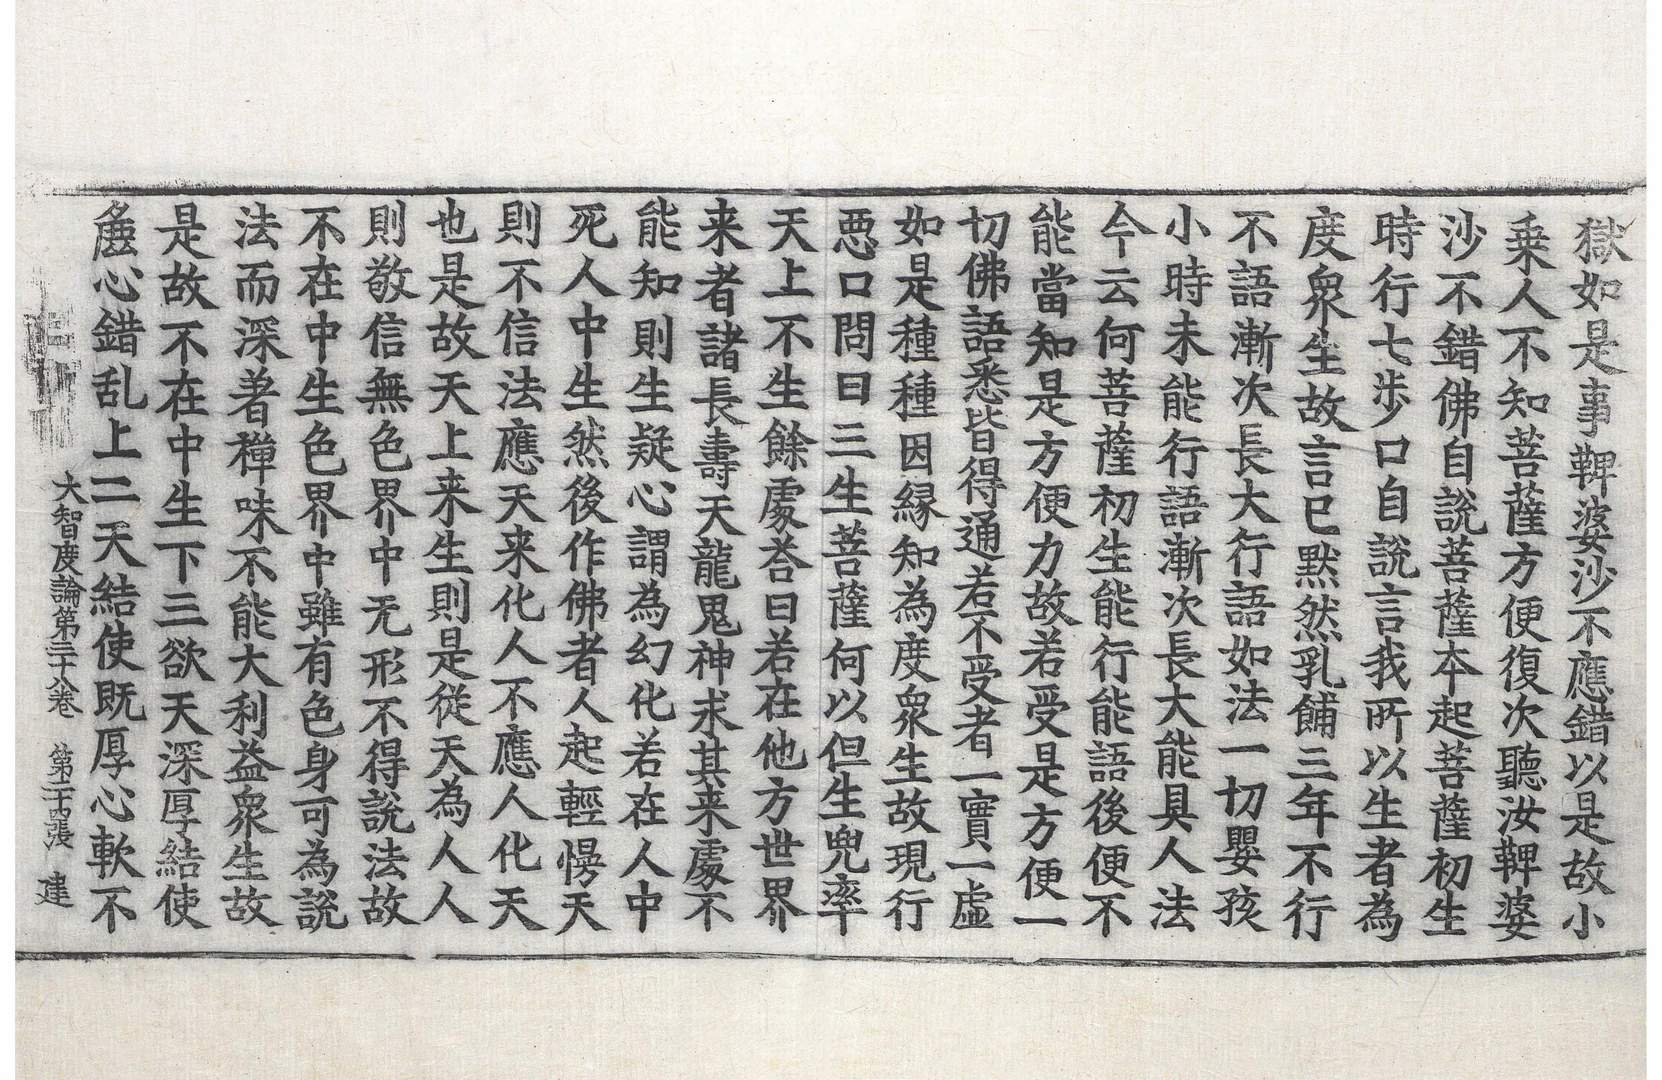 獄如是事鞞婆沙不應錯以是故小
乗人不知菩薩方便復次聽汝鞞婆
沙不錯佛自說菩薩夲起菩薩初生
時行七步口自說言我所以生者為
度衆生故言已黙然乳餔三年不行
不語漸次長大行語如法一切嬰孩
小時未能行語漸次長大能具人法
今云何菩薩初生能行能語後便不
能當知是方便力故若受是方便一
切佛語悉皆得通若不受者一實一虛
如是種種因縁知為度衆生故現行
悪口問曰三生菩薩何以但生兜率
天上不生餘處荅曰若在他方世界
来者諸長壽天龍鬼神求其来處不
能知則生疑心謂為幻化若在人中
死人中生然後作佛者人起輕慢天
則不信法應天来化人不應人化天
也是故天上来生則是從天為人人
則敬信無色界中无形不得說法故
不在中生色界中雖有色身可為說
法而深著禪味不能大利益衆生故
是故不在中生下三欲天深厚結使
麁心錯乱上二天結使既厚心軟不
大智度論第三十八卷　第二十四張　建